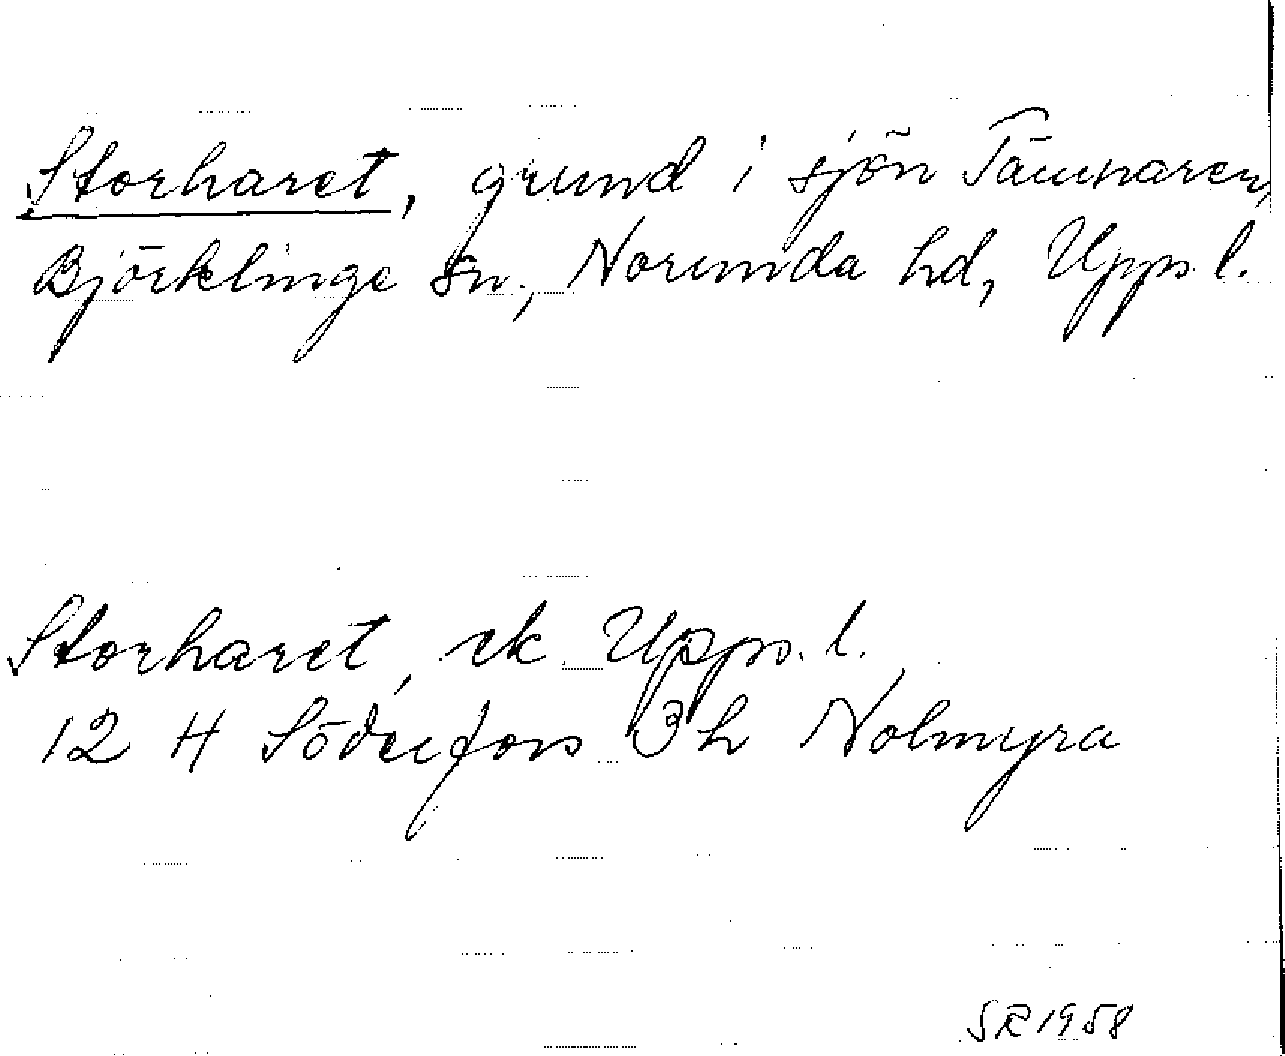 Storharet, grund i sjön Tämnaren,
Björklinge sn, Norunda hd, Uppl.
Storharet, ek. Uppl.
12 H Söderfors 3 h Nolmyra
SR 1958